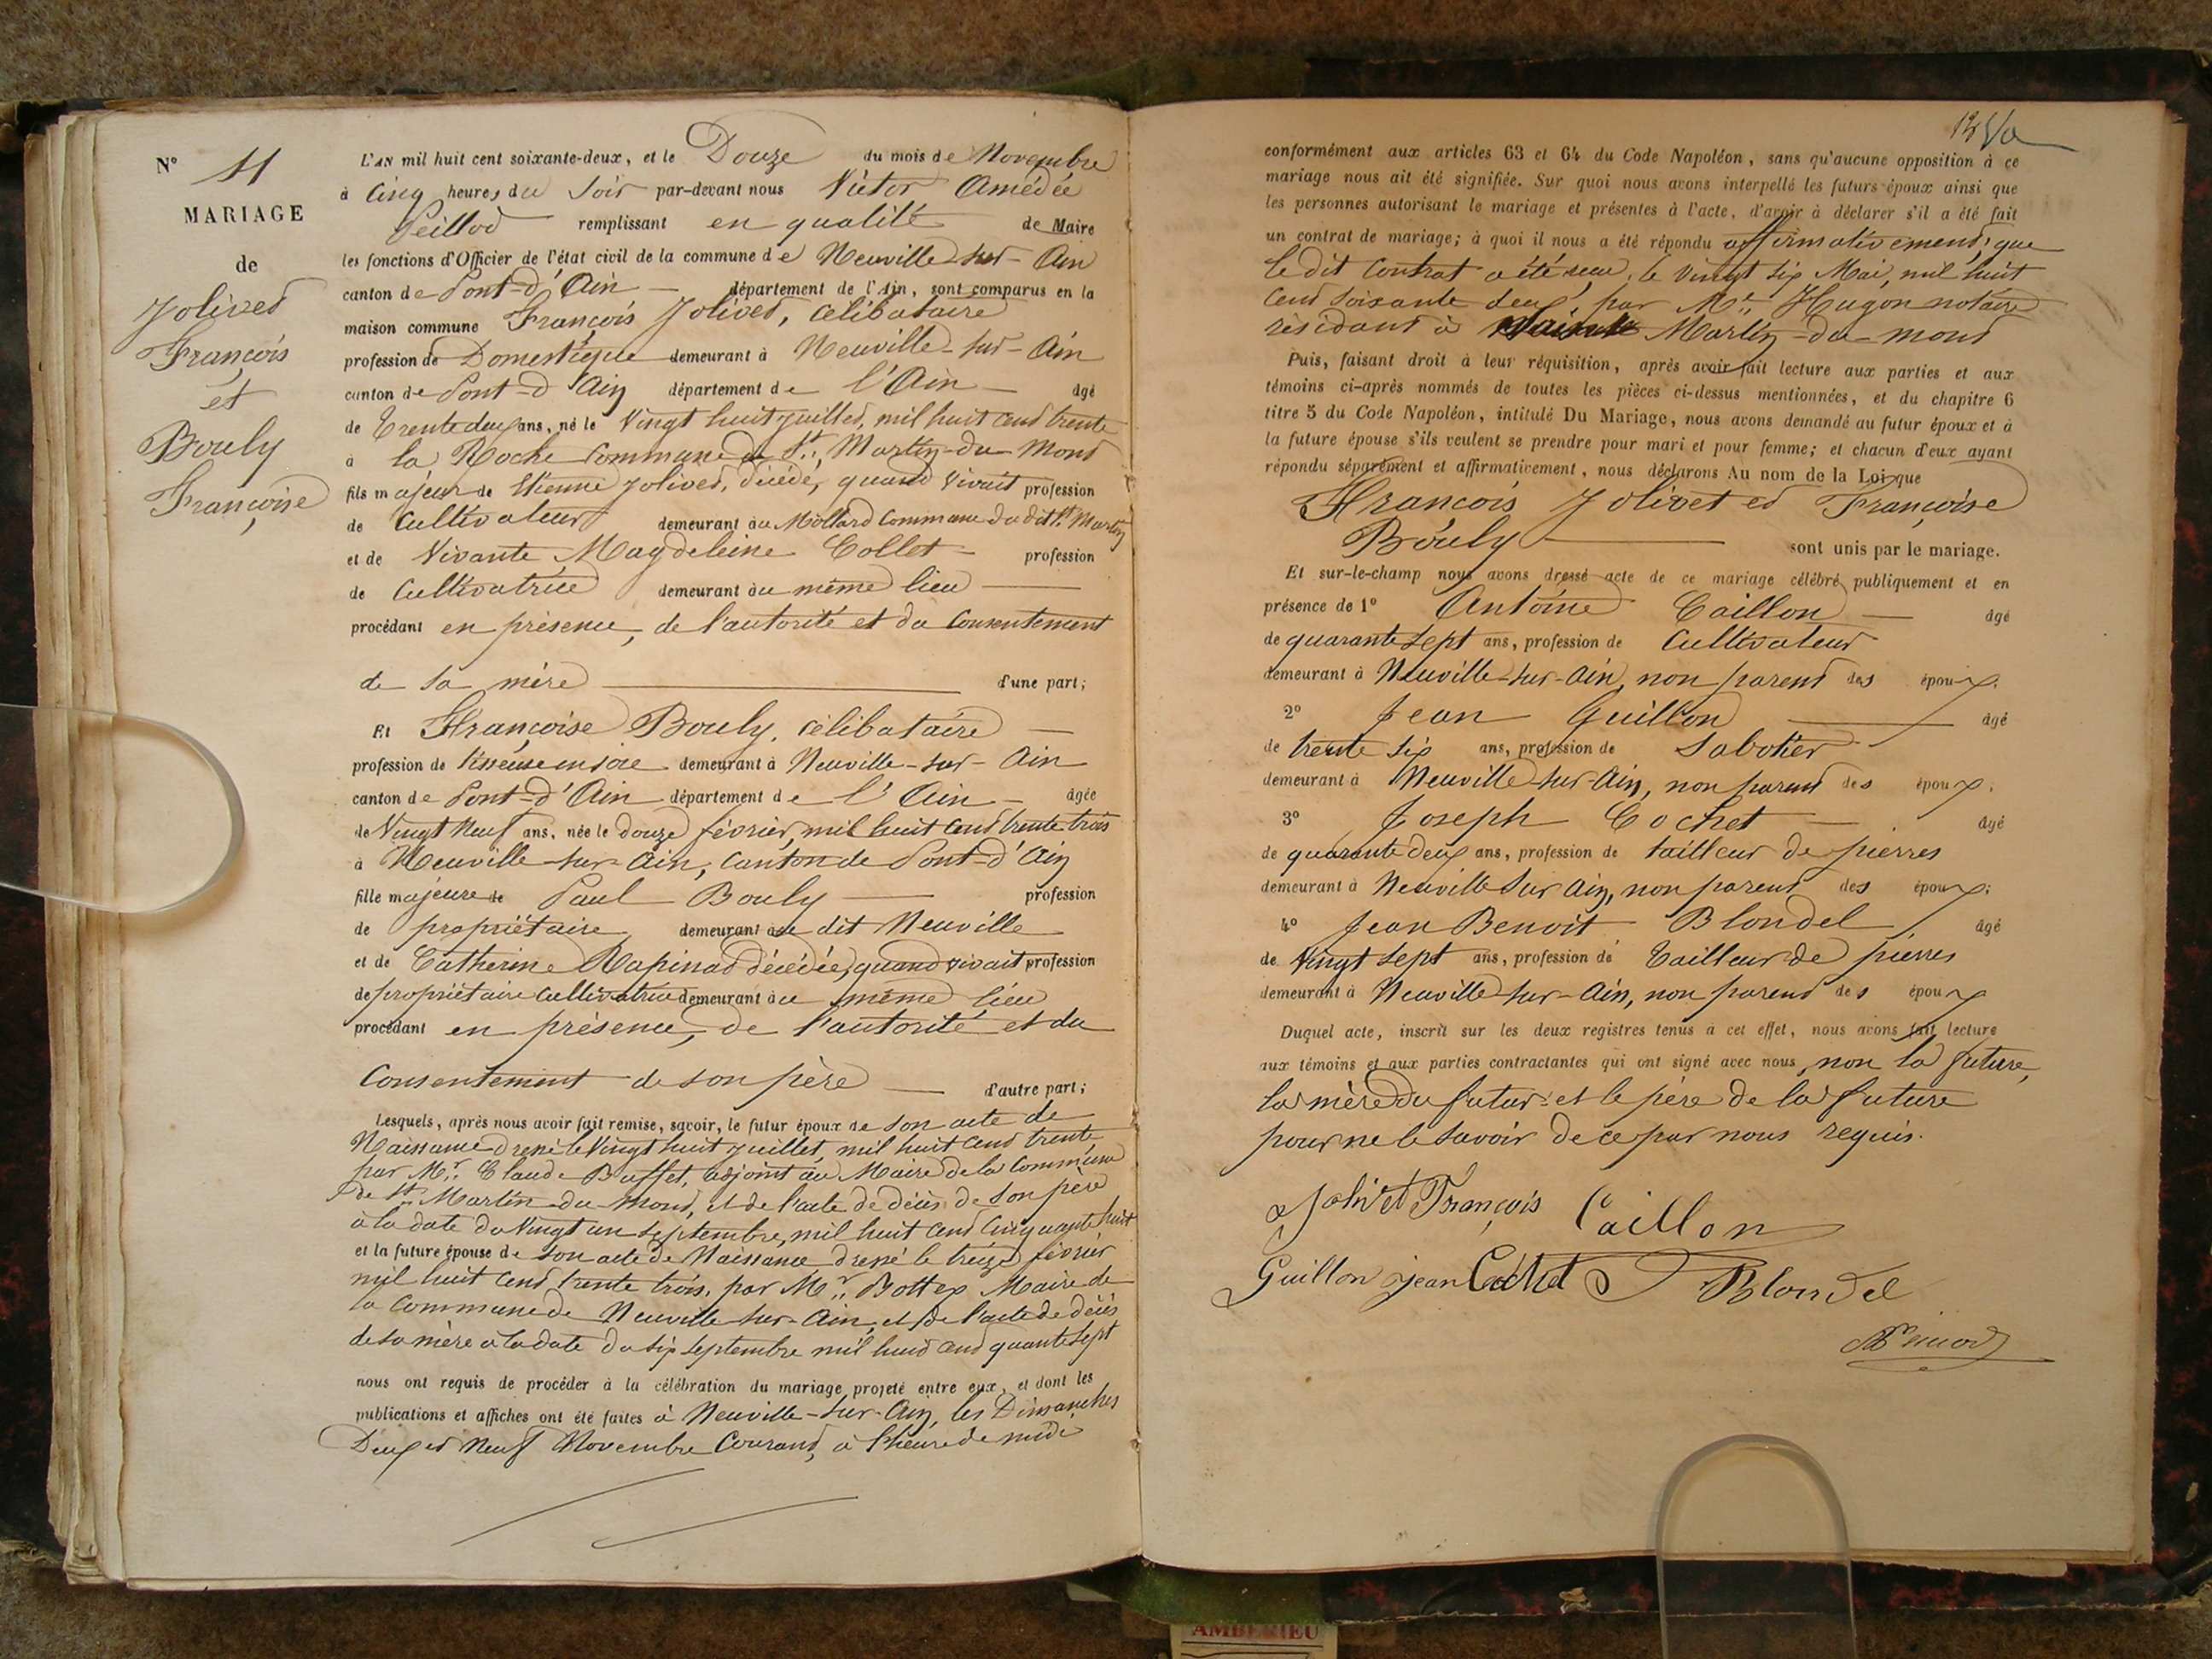 N° 11
MARIAGE
de
Jolivet
François
et
Bouly
Françoise
L'AN mil huit cent soixante-deux, et le Douze du mois de Novembre
à Cinq heures du Soir par-devant nous Victor Amédée
Peillod remplissant en qualité de Maire
les fonctions d'Officier de l'état civil de la commune de Neuville-sur-Ain
canton de Pont-d'Ain département de l'Ain, sont comparus en la
maison commune François Jolivet, célibataire
profession de Domestique demeurant à Neuville-sur-Ain
canton de Pont-d'Ain département de l'Ain âgé
de Trente deux ans, né le Vingt huit juillet, mil huit cent trente
à la Roche Commune de St Martin-du-Mont
fils majeur de Etienne Jolivet, décédé, quand vivait profession
de Cultivateur demeurant au Mollard Commune du dit St Martin
et de Vivante Magdeleine Collet profession
de Cultivatrice demeurant au même lieu
procédant en présence, de l'autorité et du Consentement
de sa mère d'une part;
Et Françoise Bouly, célibataire
profession de tisseuse en soie demeurant à Neuville-sur-Ain
canton de Pont-d'Ain département de l'Ain âgée
de Vingt Neuf ans, née le douze février, mil huit cent trente trois
à Neuville-sur-Ain, Canton de Pont-d'Ain
fille majeure de Paul Bouly profession
de propriétaire demeurant au dit Neuville
et de Catherine Rapinad décédée, quand vivait profession
de propriétaire cultivatrice demeurant au même lieu
procédant en présence, de l'autorité et du
Consentement de son père d'autre part;
Lesquels, après nous avoir fait remise, savoir, le futur époux de son acte de
Naissance dressé le Vingt huit juillet, mil huit cent trente,
par Mr Claude Buffet, adjoint au Maire de la Commune
de St Martin-du-Mont, et de l'acte de décès de son père
à la date du Vingt un septembre, mil huit cent cinquante huit
et la future épouse de son acte de Naissance dressé le treize février
mil huit cent trente trois, par Mr Bottex Maire de
la Commune de Neuville-sur-Ain, et de l'acte de décès
de sa mère à la date du six septembre mil huit cent quante sept
nous ont requis de procéder à la célébration du mariage projeté entre eux, et dont les
publications et affiches ont été faites à Neuville-sur-Ain, les Dimanches
Deux et Neuf Novembre Courant, à l'heure de midi
conformément aux articles 63 et 64 du Code Napoléon, sans qu'aucune opposition à ce
mariage nous ait été signifiée. Sur quoi nous avons interpellé les futurs époux ainsi que
les personnes autorisant le mariage et présentes à l'acte, d'avoir à déclarer s'il a été fait
un contrat de mariage; à quoi il nous a été répondu affirmativement, que
le dit Contrat a été reçu, le Vingt six Mai, mil huit
cent soixante deux, par Me Hugon notaire
résidant à Martin-du-mont
Puis, faisant droit à leur réquisition, après avoir fait lecture aux parties et aux
témoins ci-après nommés de toutes les pièces ci-dessus mentionnées, et du chapitre 6
titre 5 du Code Napoléon, intitulé Du Mariage, nous avons demandé au futur époux et à
la future épouse s'ils veulent se prendre pour mari et pour femme; et chacun d'eux ayant
répondu séparément et affirmativement, nous déclarons Au nom de la Loi que
François Jolivet et Françoise
Bouly sont unis par le mariage.
Et sur-le-champ nous avons dressé acte de ce mariage célébré publiquement et en
présence de 1° Antoine Caillon âgé
de quarante sept ans, profession de Cultivateur
demeurant à Neuville-sur-Ain, non parent des époux.
2° Jean Guillon âgé
de trente six ans, profession de Sabotier
demeurant à Neuville-sur-Ain, non parent des époux.
3° Joseph Cochet âgé
de quarante deux ans, profession de tailleur de pierres
demeurant à Neuville sur Ain, non parent des époux;
4° Jean Benoit Blondel, âgé
de Vingt sept ans, profession de Tailleur de pierres
demeurant à Neuville-sur-Ain, non parent des époux
Duquel acte, inscrit sur les deux registres tenus à cet effet, nous avons fait lecture
aux témoins et aux parties contractantes qui ont signé avec nous, non la future,
la mère du futur et le père de la future
pour ne le savoir de ce par nous requis.
Jolivet François Caillon
Guillon jean Cochet Blondel
AMBERIEU